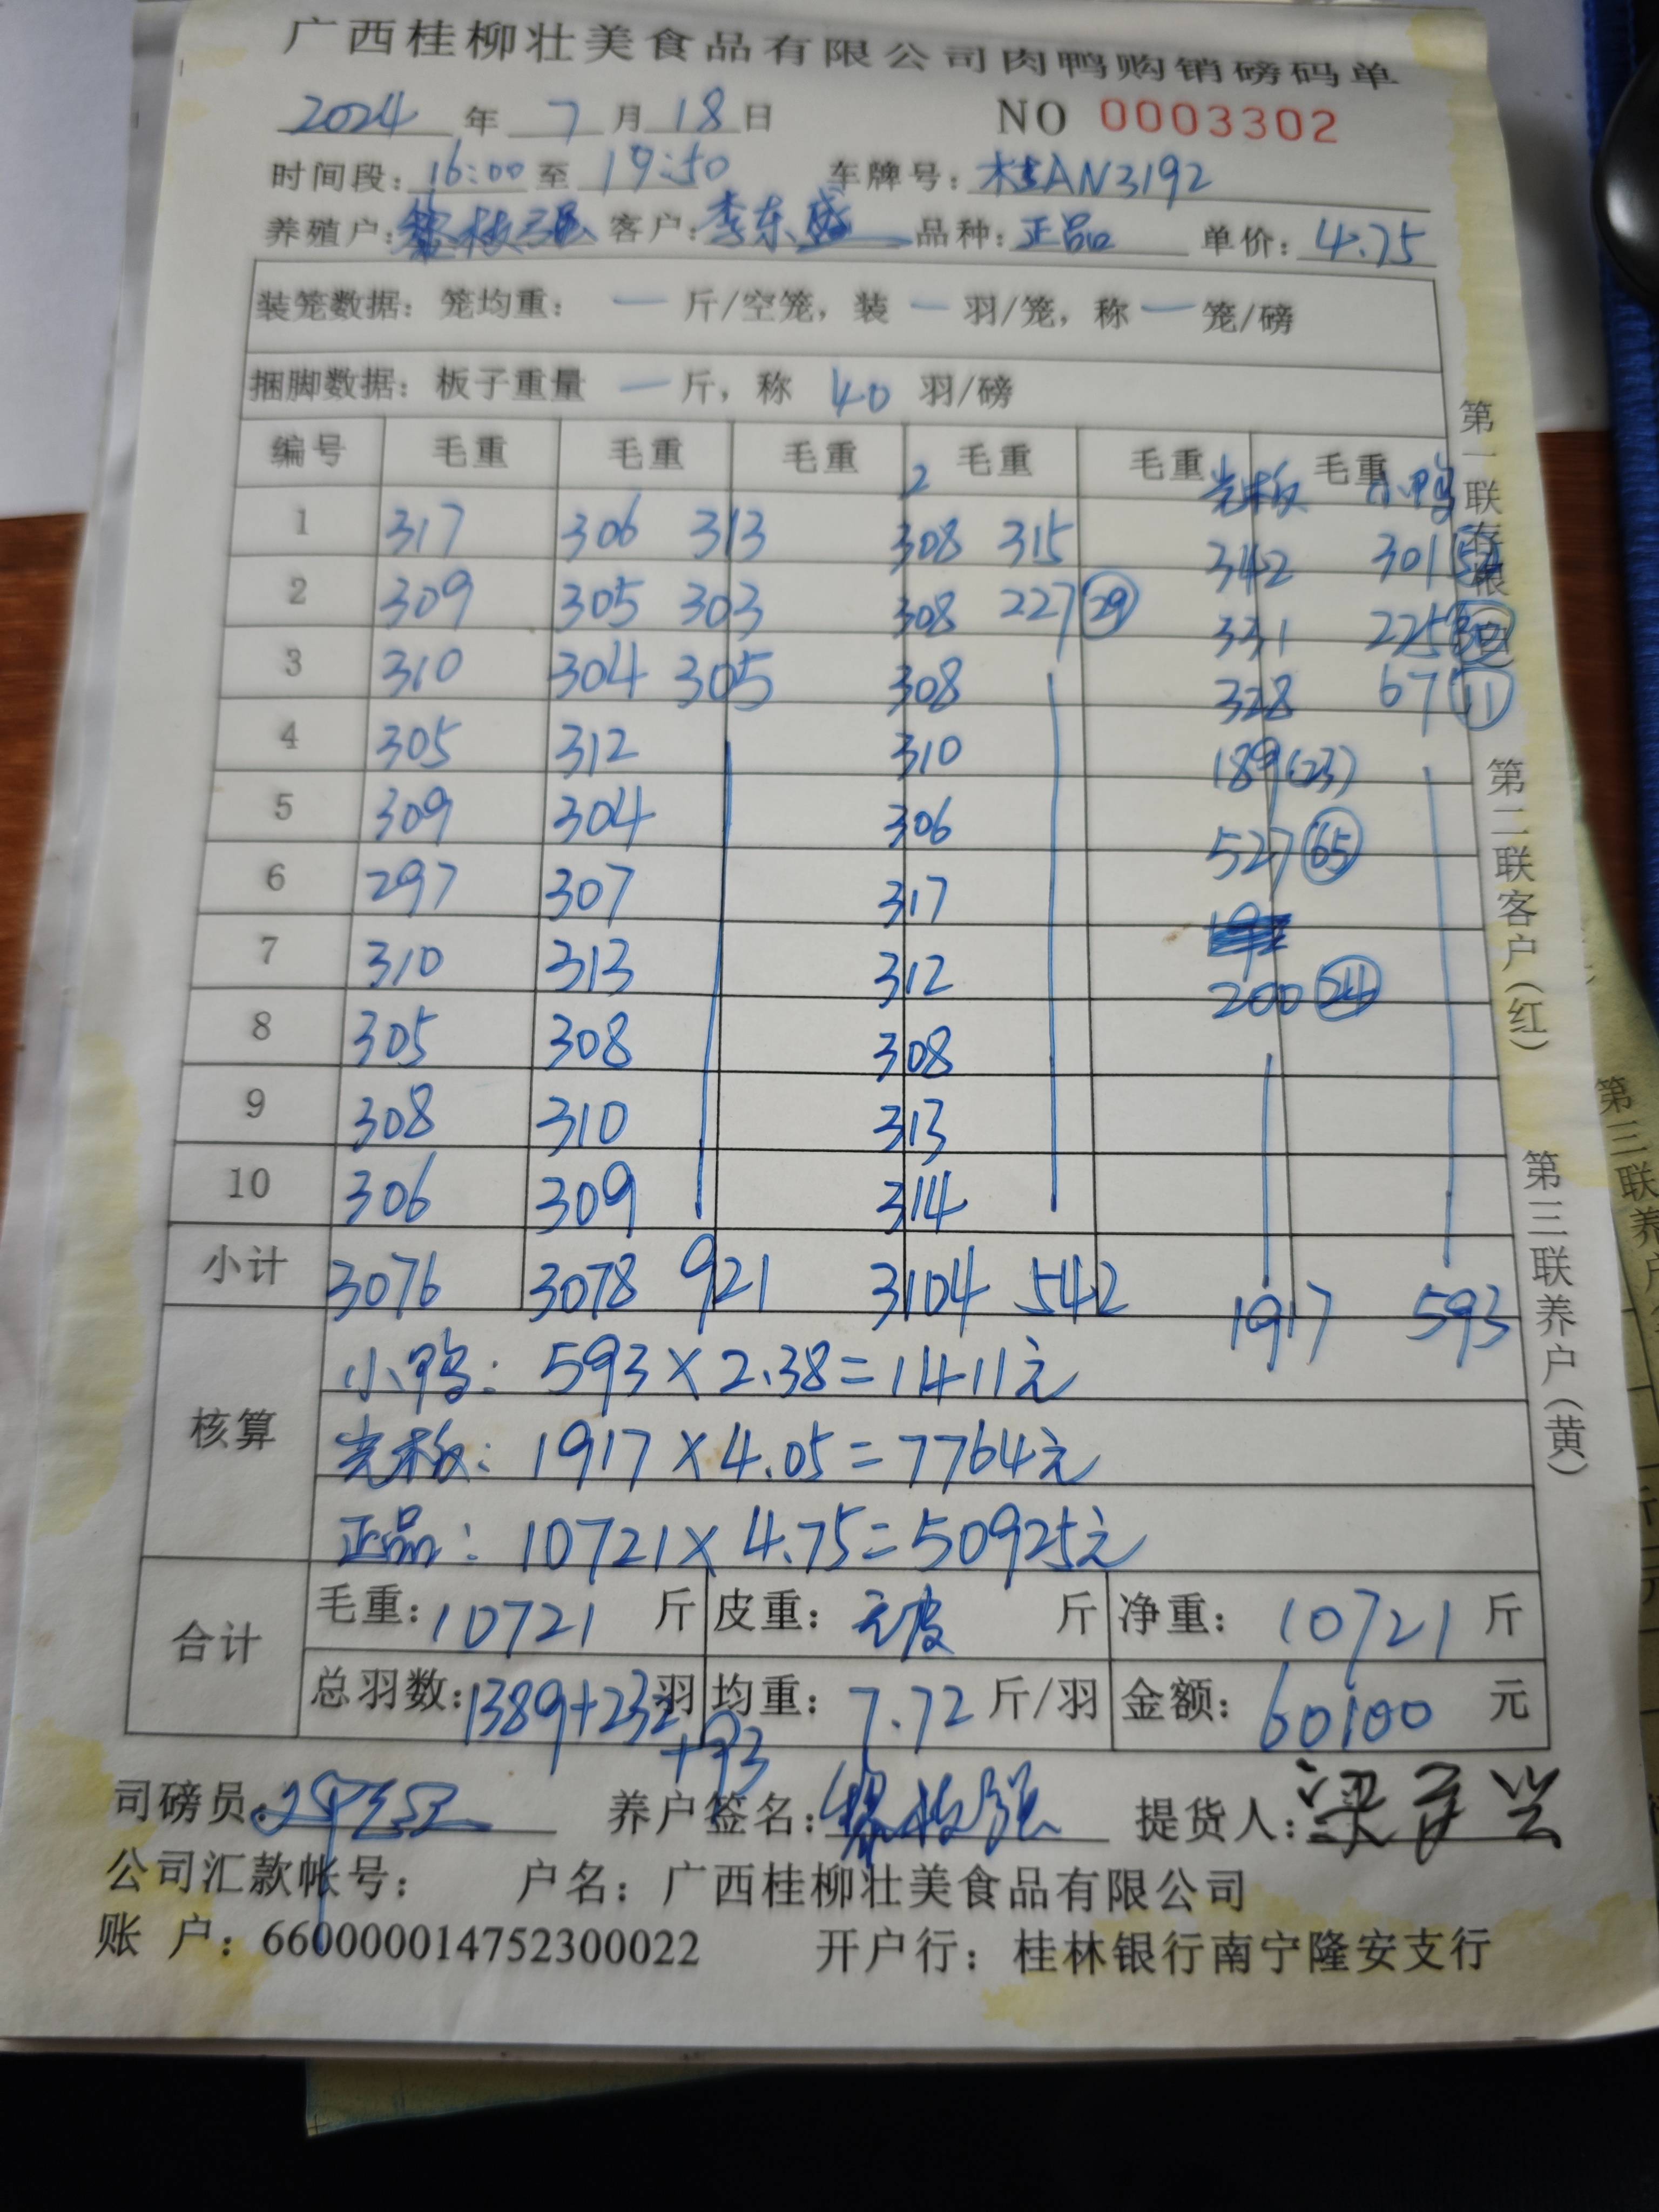 广西桂柳壮美食品有限公司肉鸭购销磅码单
2024 年 7 月 18 日 NO 0003302
时间段: 16:00 至 19:50 车牌号: 桂AN3192
养殖户: 客户: 李东盛 品种: 正品 单价: 4.75
装笼数据: 笼均重: 一 斤/空笼, 装 一 羽/笼, 称 一 笼/磅
捆脚数据: 板子重量 一 斤, 称 40 羽/磅
编号 毛重 毛重 毛重 2 毛重 毛重 光板 毛重 小鸭
1 317 306 313 308 315 342 301
2 309 305 303 308 227 29 331 225
3 310 304 305 308 328 67 11
4 305 312 310 189(23)
5 309 304 306 527 65
6 297 307 317
7 310 313 312 200 24
8 305 308 308
9 308 310 313
10 306 309 314
小计 3076 3078 921 3104 542 1917 593
核算
小鸭: 593×2.38=1411元
光板: 1917×4.05=7764元
正品: 10721×4.75=50925元
合计
毛重: 10721 斤 皮重: 无皮 斤 净重: 10721 斤
总羽数: 1389+232 羽 均重: 7.72 斤/羽 金额: 60100 元
+93
司磅员: 养户签名: 提货人:
公司汇款帐号: 户名: 广西桂柳壮美食品有限公司
账 户: 660000014752300022 开户行: 桂林银行南宁隆安支行
第一联存根
第二联客户(红)
第三联养户(黄)
第三联养户